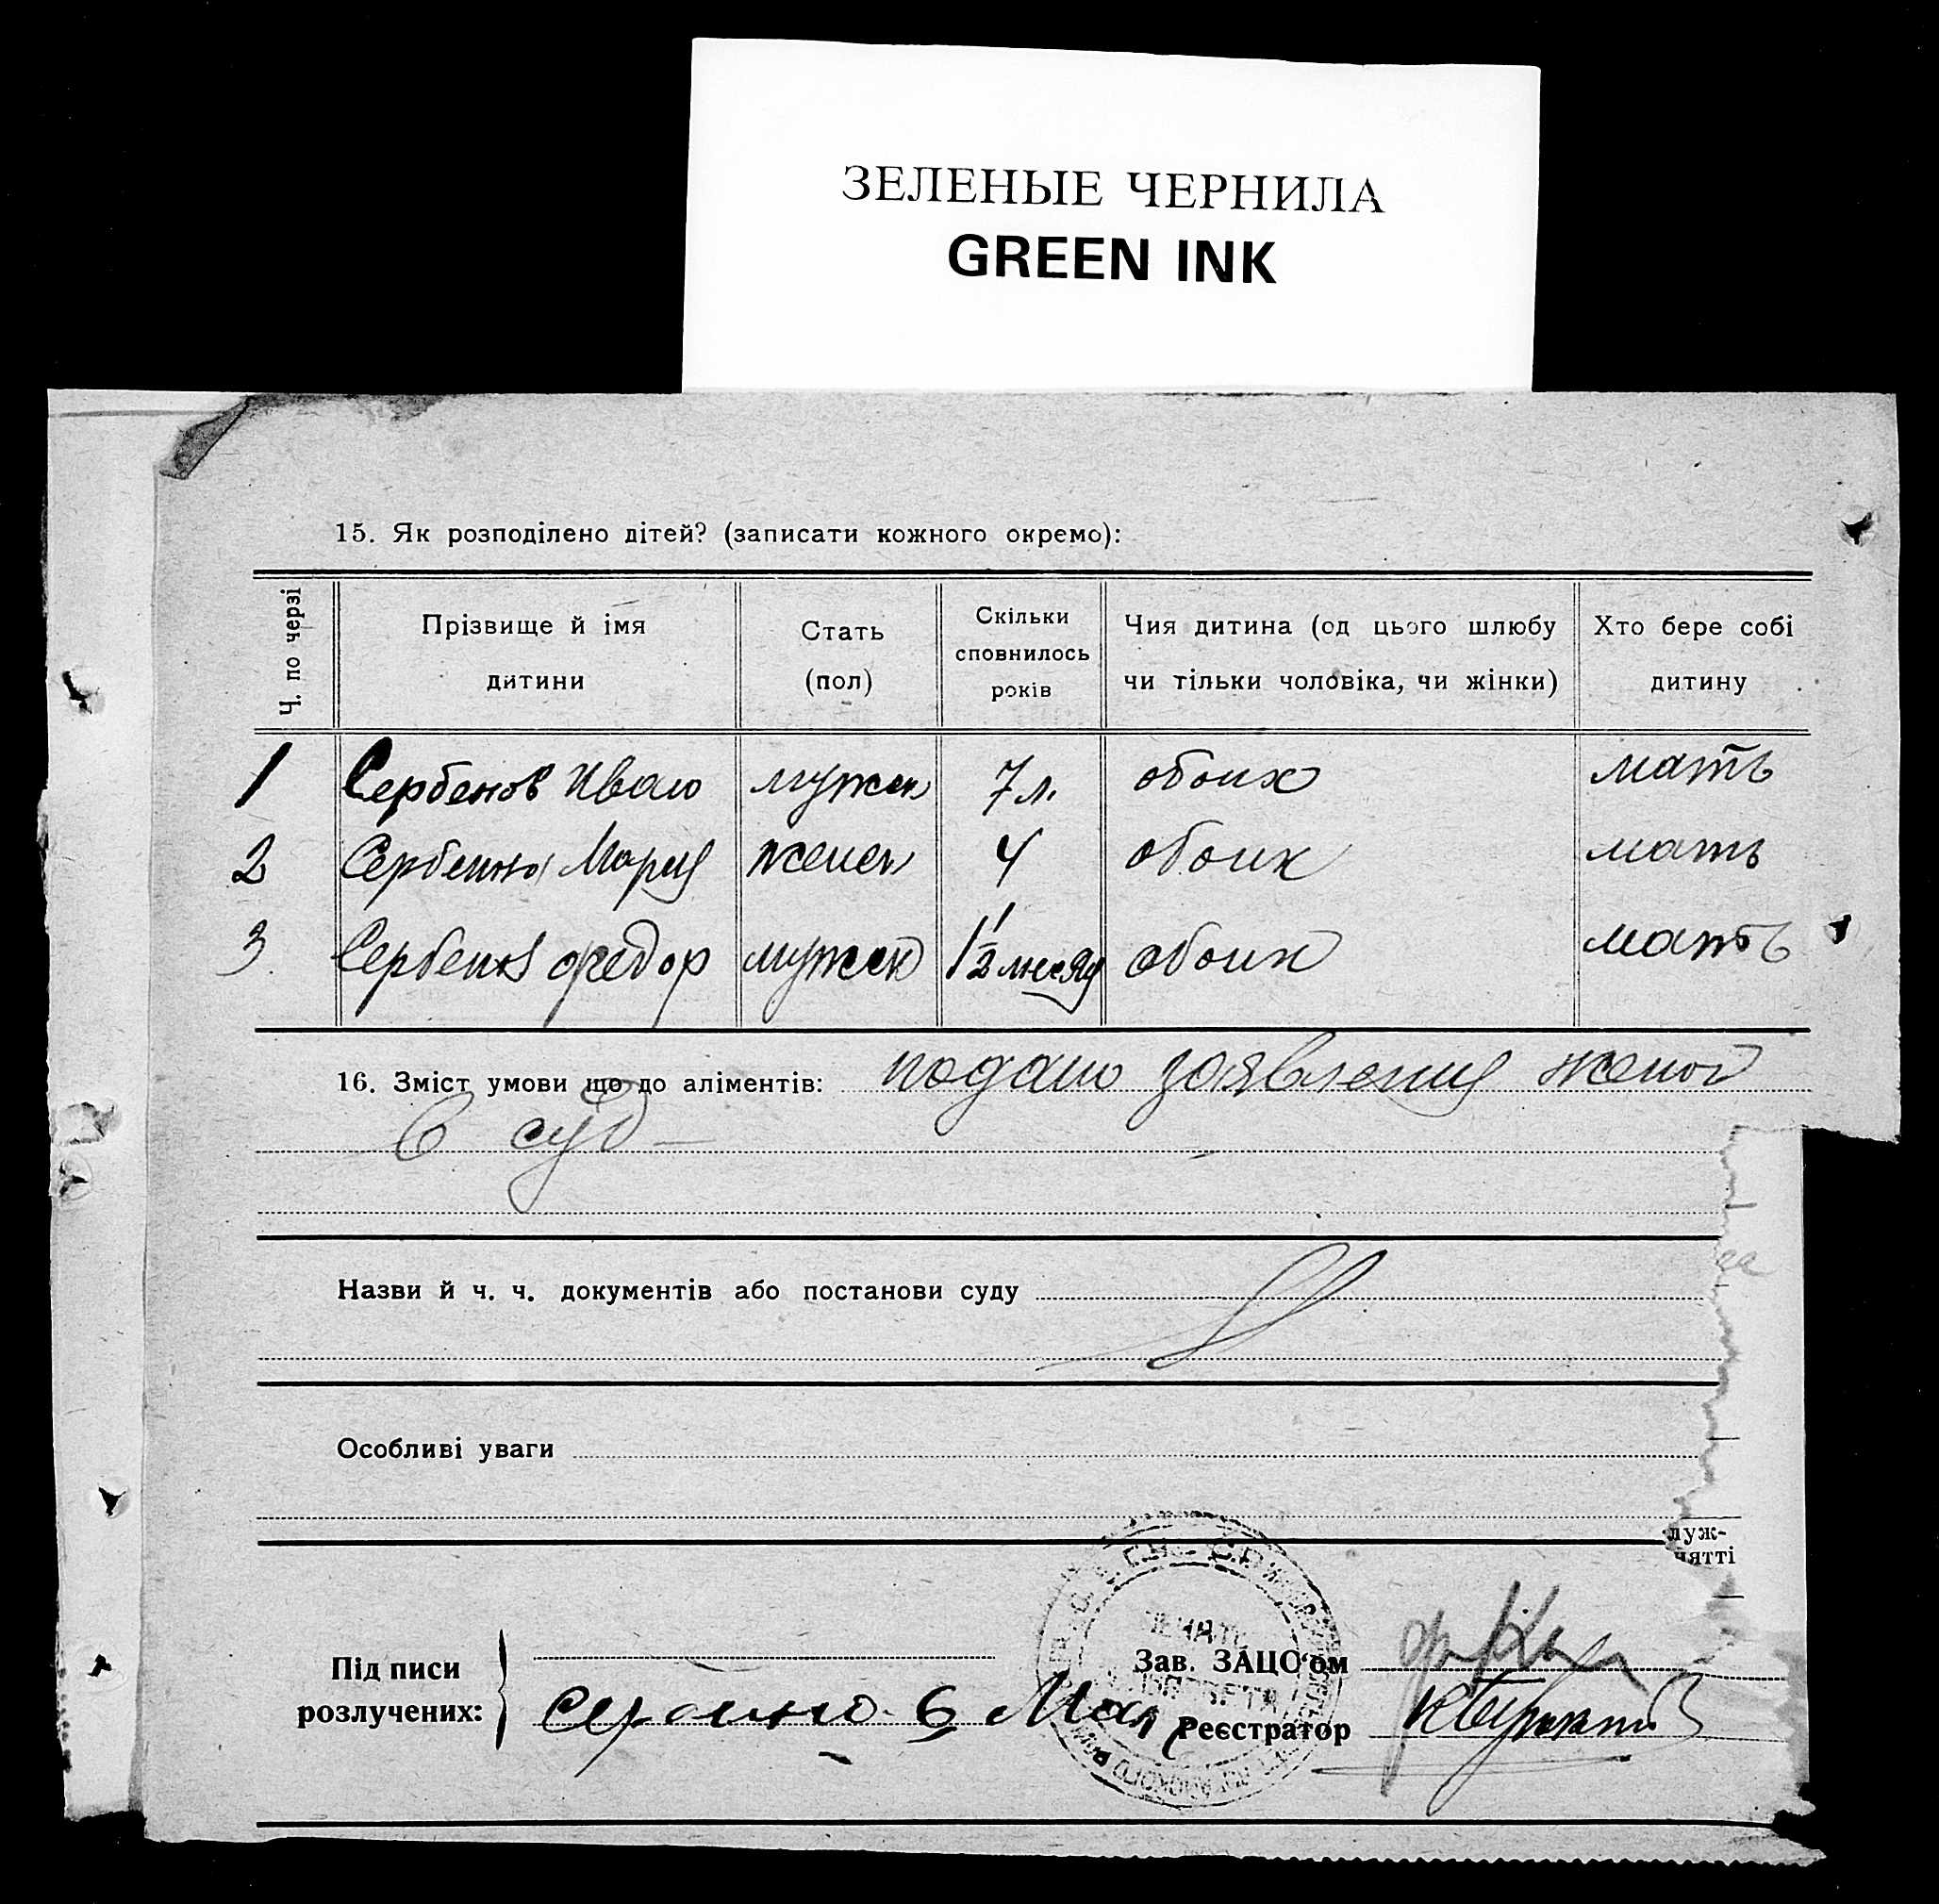 ЗЕЛЕНЫЕ ЧЕРНИЛА
GREEN INK
15. Як розподілено дітей? (записати кожного окремо):
Ч. по черзі
Прізвище й імя дитини
Стать (пол)
Скільки сповнилось років
Чия дитина (од цього шлюбу чи тільки чоловіка, чи жінки)
Хто бере собі дитину
1 Сербенов Иван мужск 7 л. обоих мать
2 Сербенно Мария женск 4 обоих мать
3. Сербенов Федор мужск 1 1/2 месяц обоих мать
16. Зміст умови що до аліментів: подано заявления женой
в суд —
Назви й ч. ч. документів або постанови суду
Особливі уваги
луж-
нятті
Підписи розлучених:
Зав. ЗАЦС'ом
Реєстратор